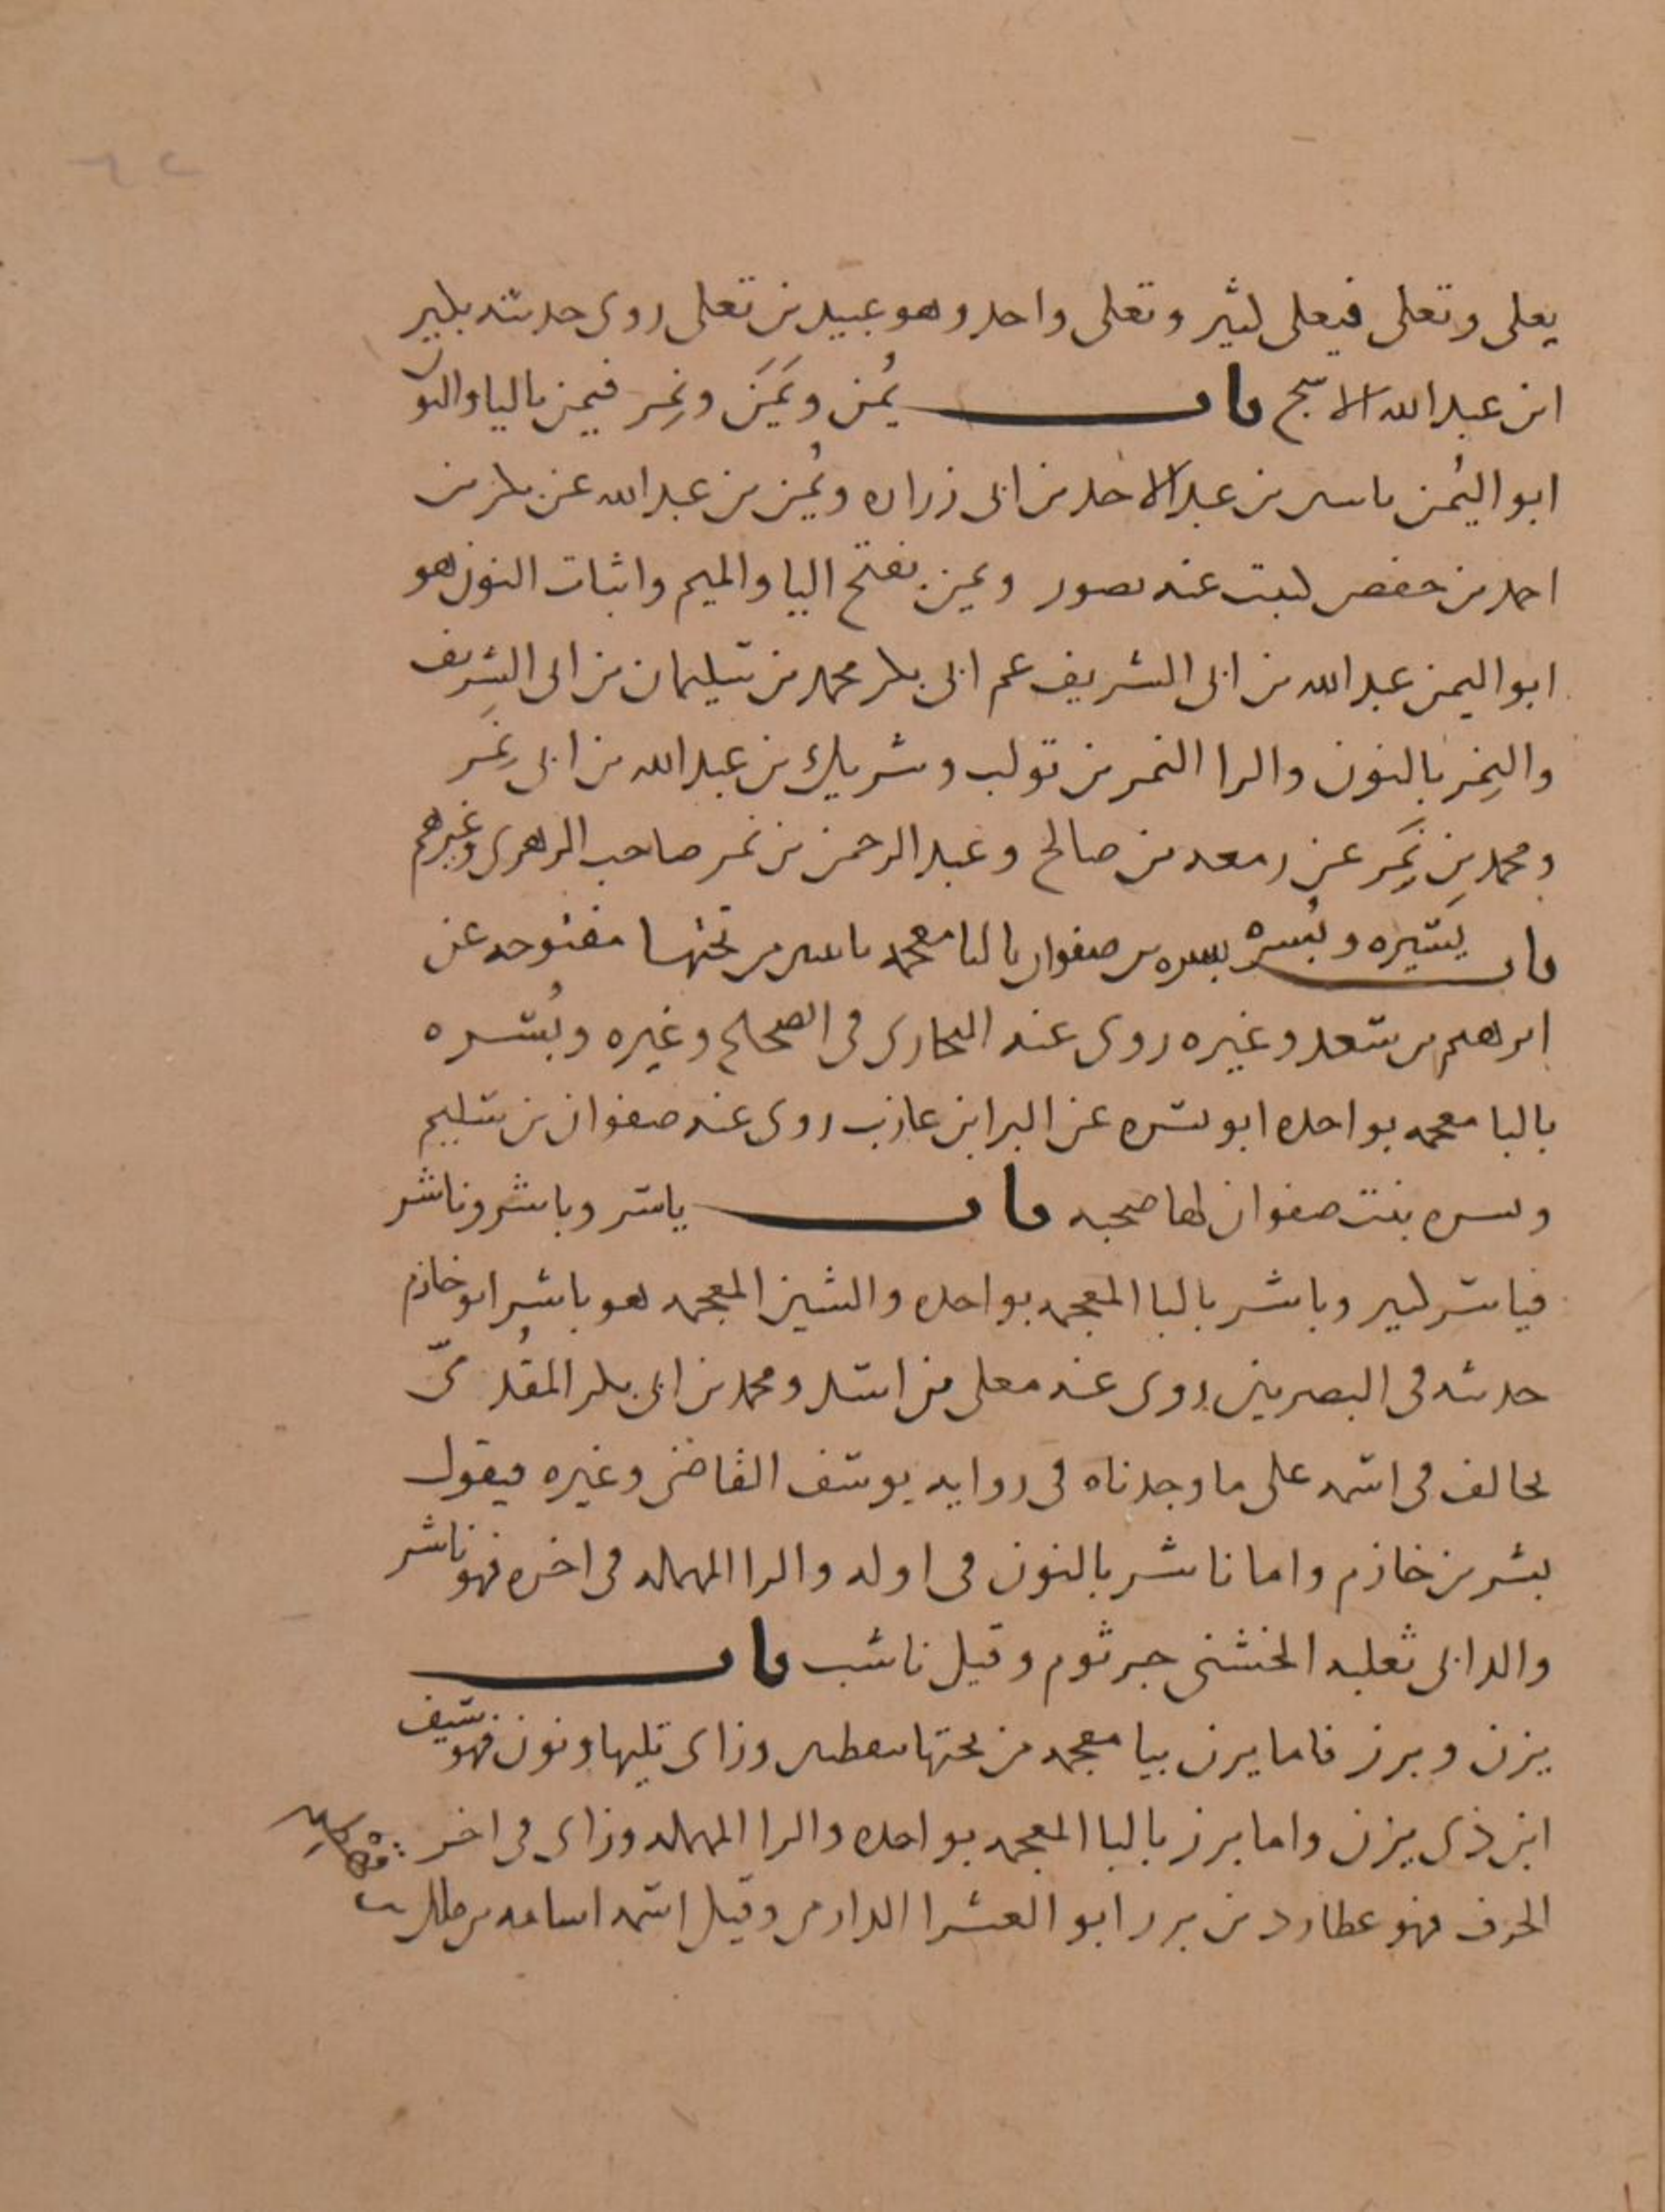 يعلى وتعلى فيعلى كثير وتعلى واحد وهو عبيد بن تعلى روى حديثه بكير
ابن عبد الله الاشج باب يُمن ويَمَن ونمِر فيمن باليا والنون
ابو اليُمن ياسر بن عبد الاحد بن ابى زراره ويُمن بن عبد الله عن بكر بن
احمد بن حفص كتبت عنه بصور ويمن بفتح اليا والميم واثبات النون هو
ابو اليمن عبد الله بن ابى الشريف عم ابى بكر محمد بن سليمان بن ابى الشريف
والنمِر بالنون والرا النمر بن تولب وشريك بن عبد الله بن ابى نمَِر
ومحمد بن نمَِر عن زمعه بن صالح وعبد الرحمن بن نمر صاحب الزهرى وغيرهم
باب يَسَره وبُسره يسره بن صفوان باليا معجمه باثنين من تحتها مفتوحه عن
ابرهيم بن سعد وغيره روى عنه البخارى فى الصحيح وغيره وبُسره
بالبا معجمه بواحده ابو بسره عن البرا بن عازب روى عنه صفوان بن سليم
وبسره بنت صفوان لها صحبه باب ياسر وباشر وناشر
فياسر كثير وباشر بالبا المعجمه بواحده والشين المعجمه هو باشر ابو خازم
حديثه فى البصريين روى عنه معلى بن اسد ومحمد بن ابى بكر المقُدمىّ
يخالف فى اسمه على ما وجدناه فى روايه يوسف القاضى وغيره فيقول
بشر بن خازم واما ناشر بالنون فى اوله والرا المهمله فى اخره فهو ناشر
والد ابى ثعلبه الخشنى جرثوم وقيل ناشب باب
يزن وبرز فاما يزن بيا معجمه من تحتها بنقطتين وزاى تليها ونون فهو سيف
ابن ذى يزن واما برز بالبا المعجمه بواحده والرا المهمله وزاى فى اخر
الحرف فهو عطارد بن برز ابو العشرا الدارمى وقيل اسمه اسامه بن مالك